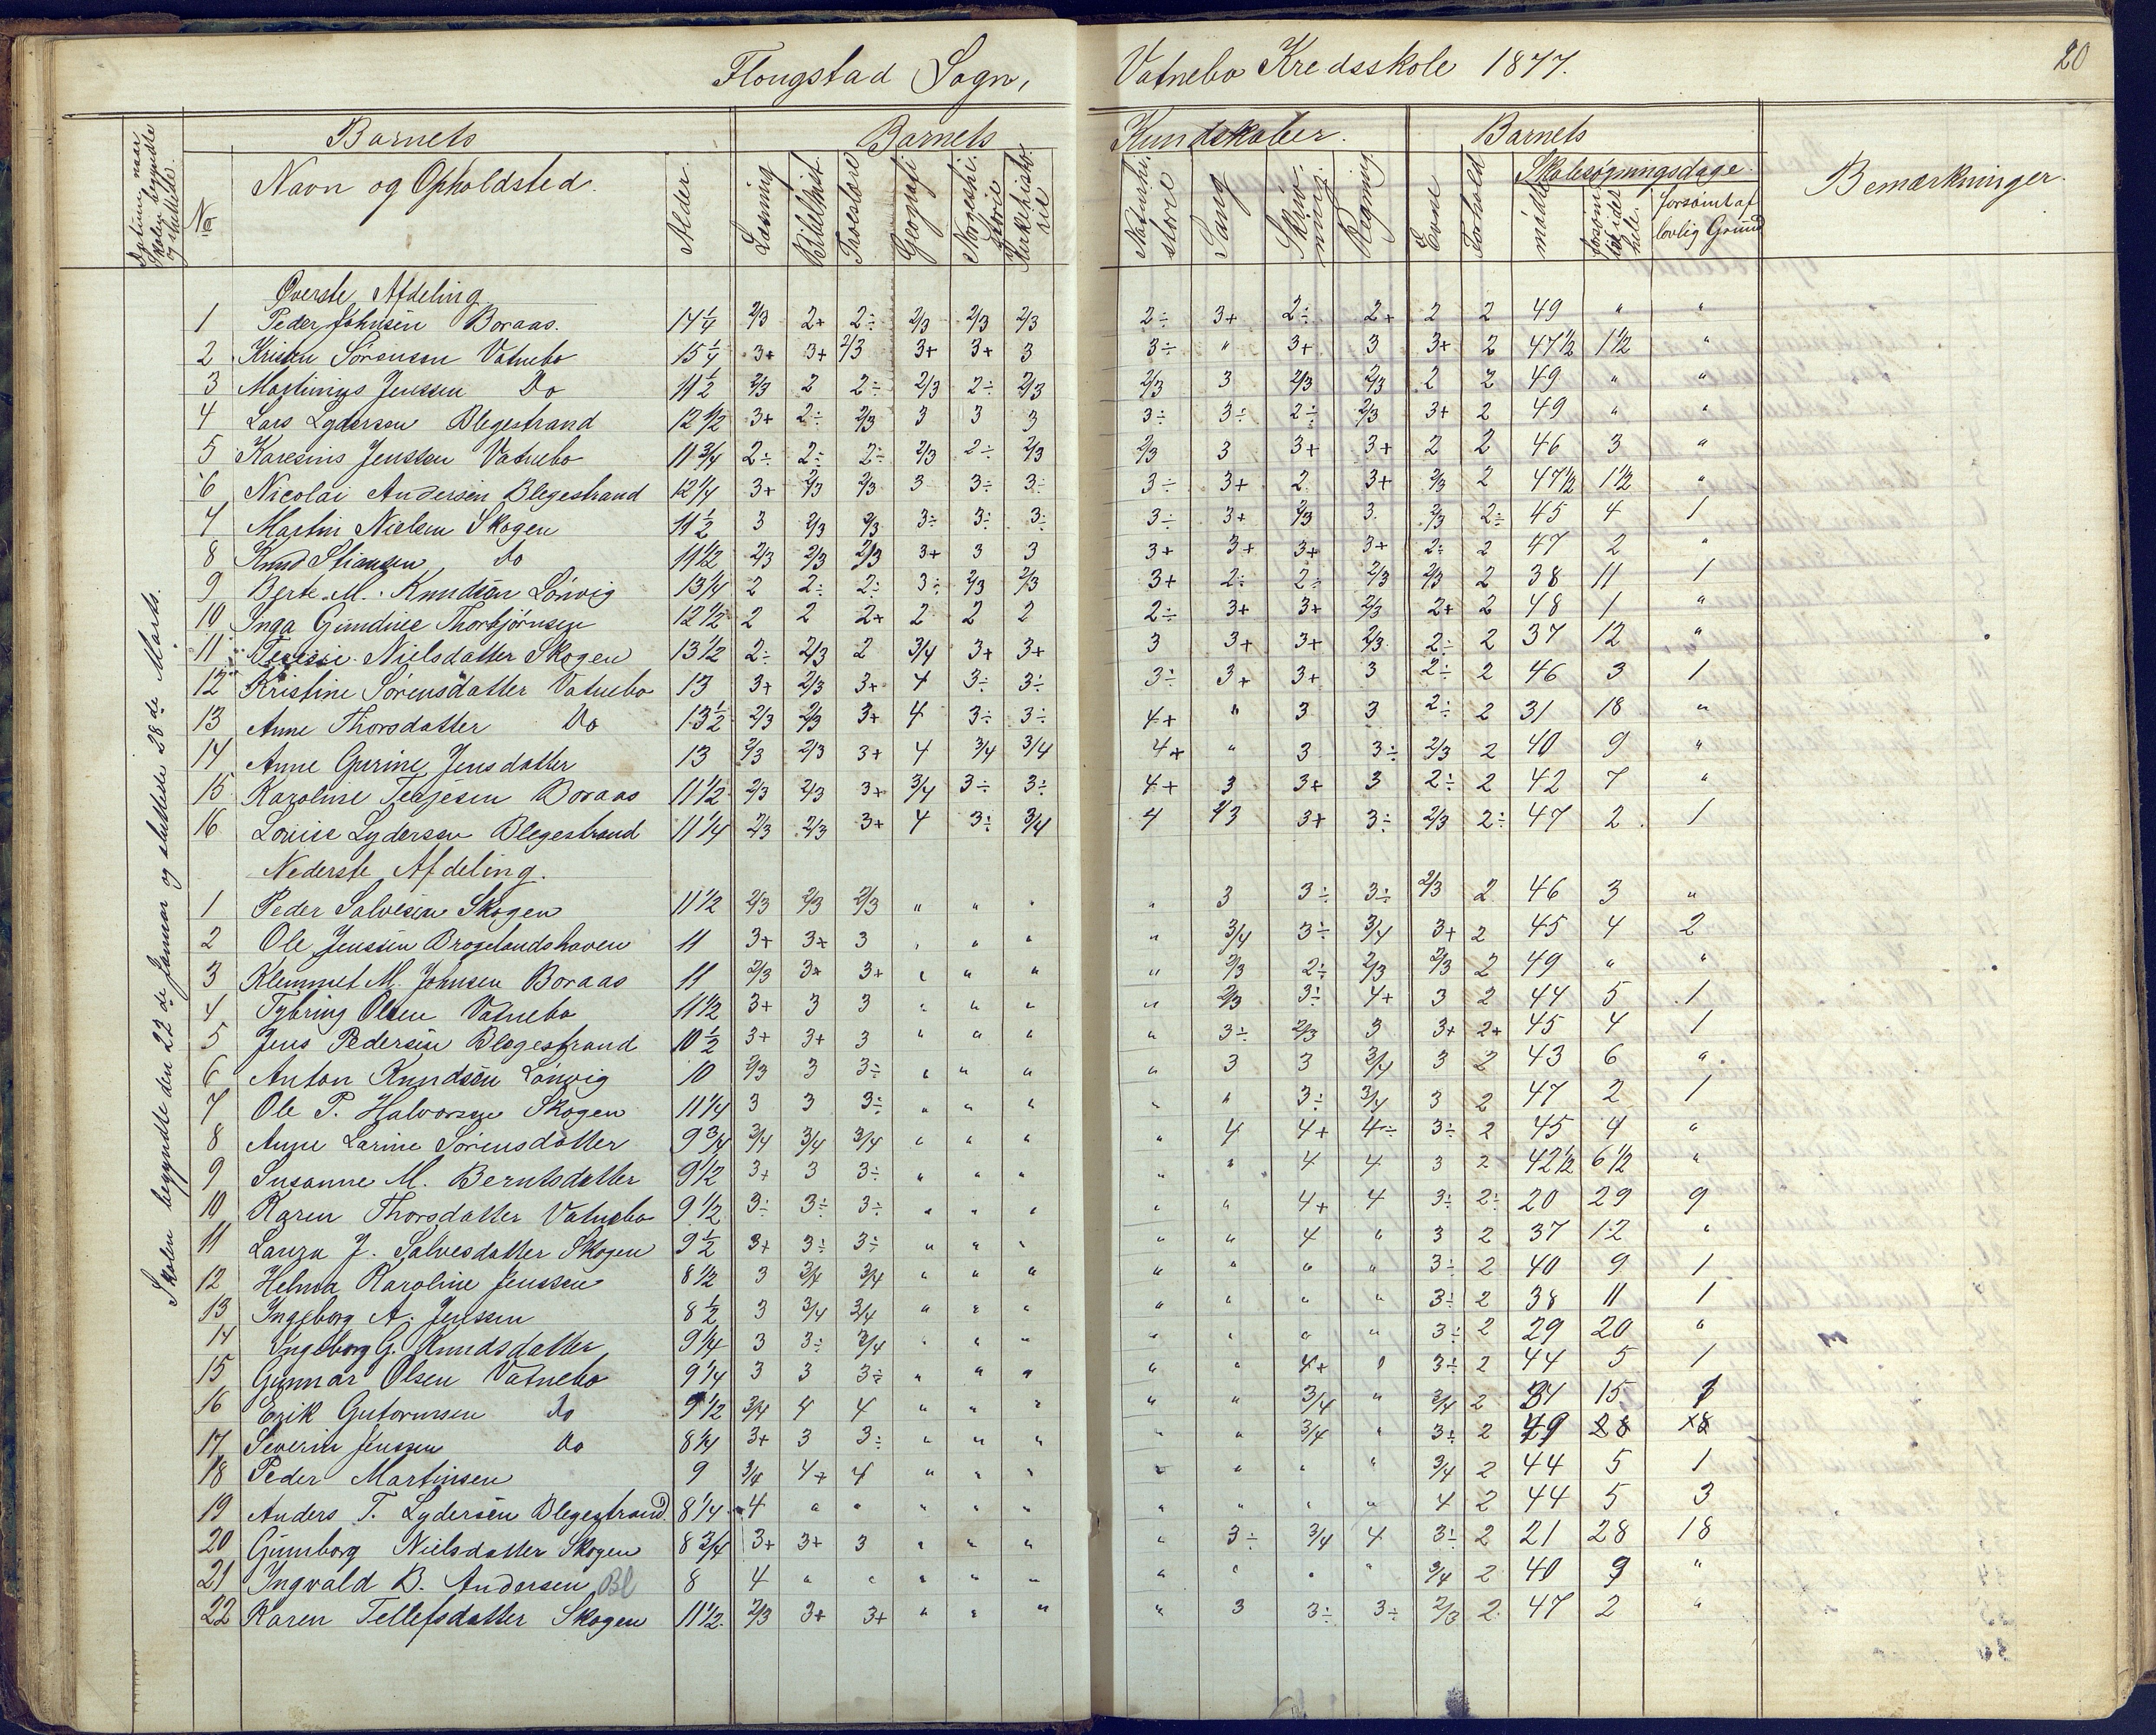 Flougstad Sogn, Vatnebo Kredsskole 1877. 20
Barnets Barnets Kundskaber. Barnets
Skolen begyndte og sluttede.
No Navn og Opholdsted. Alder. Læsning Bibelhist. Troeslære Geografi Norgeshistorie Kirkehistorie Naturhistorie Sang Skrivning. Regning. Evne Forhold Skolesøgningsdage. mødte forsømt forsømt af lovlig Grund Bemærkninger.
Skolen begyndte den 22de Januar og sluttede 28de Marts.
Øverste Afdeling.
1 Peder Johnsen Boraas. 14 1/4 2/3 2+ 2÷ 2/3 2/3 2/3 2÷ 3+ 2÷ 2+ 2 2 49 " "
2 Kristen Sørensen Vatnebo 15 1/4 3+ 3+ 2/3 3+ 3+ 3 3÷ " 3+ 3 3+ 2 47 1/2 1 1/2 "
3 Martinius Jenssen Do 11 1/2 2/3 2 2÷ 2/3 2÷ 2/3 2/3 3 2/3 2/3 2 2 49 " "
4 Lars Lydersen Blegestrand 12 1/2 3+ 2÷ 2/3 3 3 3 3÷ 3÷ 2÷ 2/3 3+ 2 49 " "
5 Karesius Jenssen Vatnebo 11 3/4 2÷ 2÷ 2÷ 2/3 2÷ 2/3 2/3 3 3+ 3+ 2 2 46 3 "
6 Nicolai Andersen Blegestrand 12 1/4 3+ 2/3 2/3 3 3÷ 3÷ 3÷ 3+ 2 3+ 2/3 2 47 1/2 1 1/2 "
7 Martin Nielsen Skogen 11 1/2 3 2/3 2/3 3÷ 3÷ 3÷ 3÷ 3+ 2/3 3 2/3 2÷ 45 4 1
8 Knud Stiansen Do 11 1/2 2/3 2/3 2/3 3+ 3 3 3+ 3+ 3+ 3+ 2÷ 2 47 2 "
9 Berte M. Knudsen Lönvig 13 1/4 2 2÷ 2÷ 3÷ 2/3 2/3 3+ 2÷ 2÷ 2/3 2/3 2 38 11 1
10 Inga Gundine Thorbjørnsen 12 1/2 2 2 2+ 2 2 2 2÷ 3+ 3+ 2/3 2+ 2 48 1 "
11 Nielsdatter Skogen 13 1/2 2÷ 2/3 2 3/4 3+ 3+ 3 3+ 3+ 2/3 2÷ 2 37 12 "
12 Kristine Sørensdatter Vatnebo 13 3+ 2/3 3+ 4 3÷ 3÷ 3÷ 3+ 3+ 3 2÷ 2 46 3 1
13 Anne Thorsdatter Do 13 1/2 2/3 2/3 3+ 4 3÷ 3÷ 4+ " 3 3 2÷ 2 31 18 "
14 Anne Gurine Jensdatter 13 2/3 2/3 3+ 4 3/4 3/4 4+ " 3 3÷ 2/3 2 40 9 "
15 Karoline Tellefsen Boraas 11 1/2 2/3 2/3 3+ 3/4 3÷ 3÷ 4+ 3 3+ 3 2÷ 2 42 7 "
16 Louise Lydersen Blegestrand 11 1/4 2/3 2/3 3+ 4 3÷ 3/4 4 2/3 3+ 3÷ 2/3 2÷ 47 2 1
Nederste Afdeling.
1 Peder Salvesen Skogen 11 1/2 2/3 2/3 2/3 " " " " 3 3÷ 3÷ 2/3 2 46 3 "
2 Ole Jenssen Brogelandshaven 11 3+ 3+ 3 " " " " 3/4 3÷ 3/4 3+ 2 45 4 2
3 Klemmet M. Johnsen Boraas 11 2/3 3+ 3+ " " " " 2/3 2÷ 2/3 2/3 2 49 " "
4 Tybring Olsen Vatnebo 11 1/2 3+ 3 3 " " " " 2/3 3÷ 4+ 3 2 44 5 1
5 Jens Pedersen Blegestrand 10 1/2 3+ 3+ 3 " " " " 3÷ 2/3 3 3+ 2+ 45 4 1
6 Anton Knudsen Lönvig 10 2/3 3 3÷ " " " " 3 3 3/4 3 2 43 6 "
7 Ole P. Halvorsen Skogen 11 1/4 3 3 3÷ " " " " " 3÷ 3/4 3 2 47 2 1
8 Anne Larine Sørensdatter 9 3/4 3/4 3/4 3/4 " " " " 4 4+ 4÷ 3÷ 2 45 4 "
9 Susanne M. Berntsdatter 9 1/2 3+ 3 3÷ " " " " " 4 4 3 2 42 1/2 6 1/2 "
10 Karen Thorsdatter Vatnebo 9 1/2 3÷ 3÷ 3÷ " " " " " 4+ 4 3÷ 2÷ 20 29 9
11 Laura J. Salvesdatter Skogen 9 1/2 3+ 3÷ 3÷ " " " " " 4 " 3 2 37 12 "
12 Helma Karoline Jenssen 8 1/2 3 3/4 3/4 " " " " " " " 3÷ 2 40 9 1
13 Ingeborg A. Jenssen 8 1/2 3 3/4 3/4 " " " " " " " 3÷ 2 38 11 1
14 Ingeborg G. Knudsdatter 9 1/4 3 3÷ 3/4 " " " " " " " 3÷ 2 29 20 "
15 Gunnar Olsen Vatnebo 9 1/4 3 3 3÷ " " " " " 4+ " 3÷ 2 44 5 1
16 Erik Gutormsen Do 9 1/2 3/4 4 4 " " " " " 3/4 " 3/4 2 34 15 1
17 Severin Jenssen Do 8 1/4 3+ 3 3÷ " " " " " 3/4 " 3÷ 2
18 Peder Martinsen 9 3/4 4+ 4 " " " " " " " 3/4 2 44 5 1
19 Anders T. Lydersen Blegestrand 8 1/4 4 " " " " " " " " " 4 2 44 5 3
20 Gunborg Nielsdatter Skogen 8 3/4 3+ 3+ 3 " " " " 3÷ 3/4 4 3÷ 2 21 28 18
21 Ingvald B. Andersen Bl 8 4 " " " " " " " " " 3/4 2 40 9 "
22 Karen Tellefsdatter Skogen 11 1/2 2/3 3+ 3+ " " " " 3 3÷ 3÷ 2/3 2 47 2 "